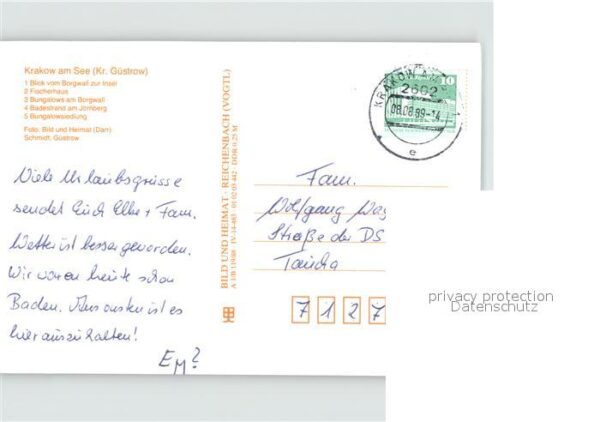 Krakow am See (Kr. Güstrow)
1 Blick vom Borgwall zur Insel
2 Fischerhaus
3 Bungalows am Borgwall
4 Badestrand am Jörnberg
5 Bungalowsiedlung
Foto: Bild und Heimat (Darr)
Schmidt, Güstrow
Viele Urlaubsgrüsse
sendet Euch Elke + Fam.
Wetter ist besser geworden.
Wir waren heute schon
Baden. Ansonsten ist es
hier auszuhalten!
BILD UND HEIMAT · REICHENBACH (VOGTL)
A 1/B 119/88 IV-14-483 01 02 03 442 DDR 0,25 M
10
KRAKOW
2602
08.08.89-14
e
Fam.
Wolfgang Wag
Straße der DS
Taucha
7127
privacy protection
Datenschutz